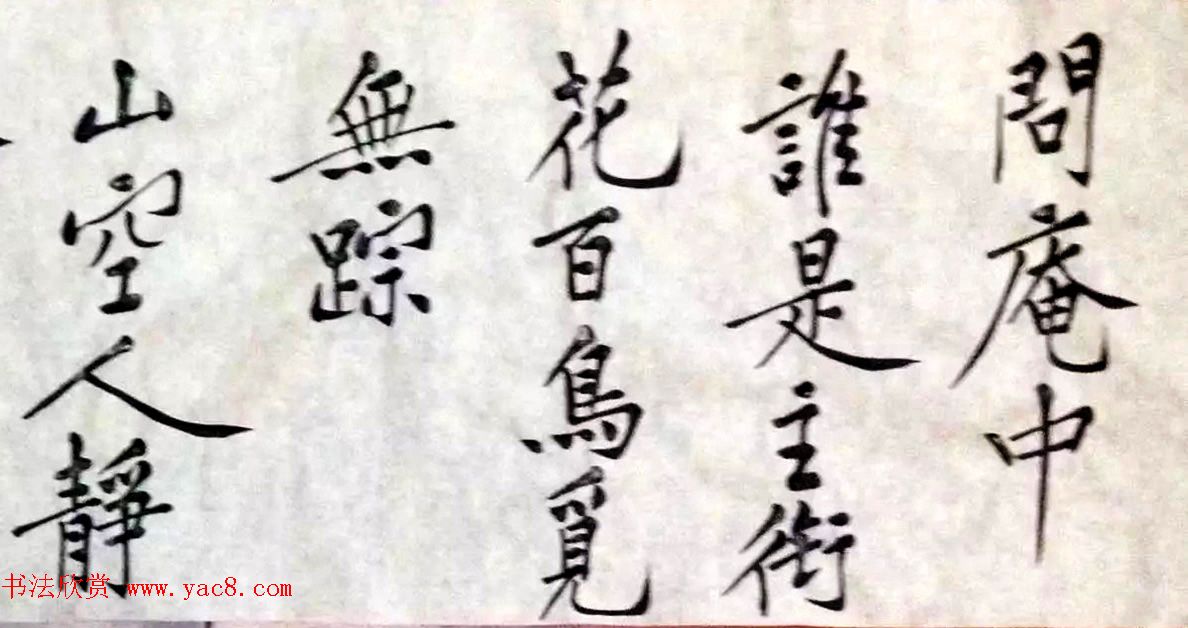 問庵中
誰是主銜
花百鳥覓
無踪
山空人靜
书法欣赏 www.yac8.com